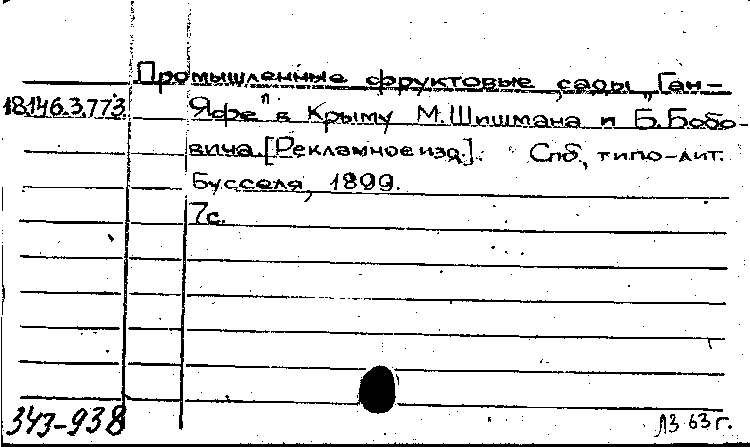 Промышленные фруктовые сады „Ган-
18.146.3.773. Яфе" в Крыму М.Шишмана и Б.Бобо-
вича.[Рекламное изд.]. Спб., типо-лит.
Бусселя, 1899.
7с.
343-938
ЛЗ 63 г.